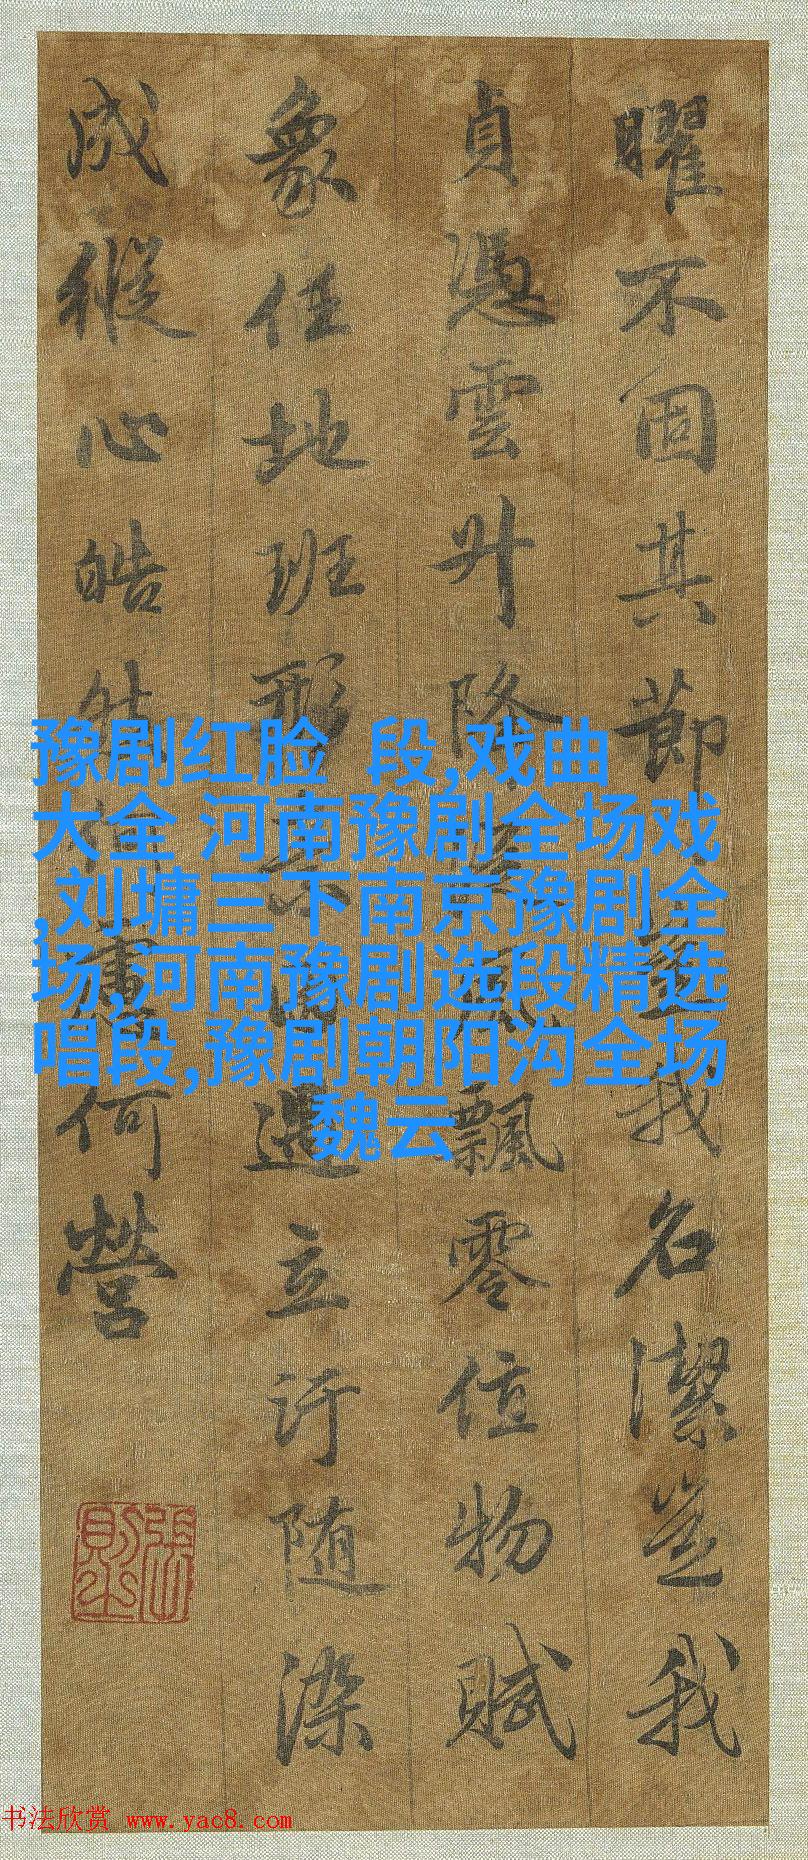 曜不固其節豈我名潔豈我
貞憑雲升降從風飄零值物賦
象任地班形素因遇立汙随染
成縱心皓然何慮何營
張則之
豫剧红脸 段,戏曲
大全 河南豫剧全场戏
,刘墉三下南京豫剧全
场,河南豫剧选段精选
唱段,豫剧朝阳沟全场
魏云
书法欣赏 www.yac8.com